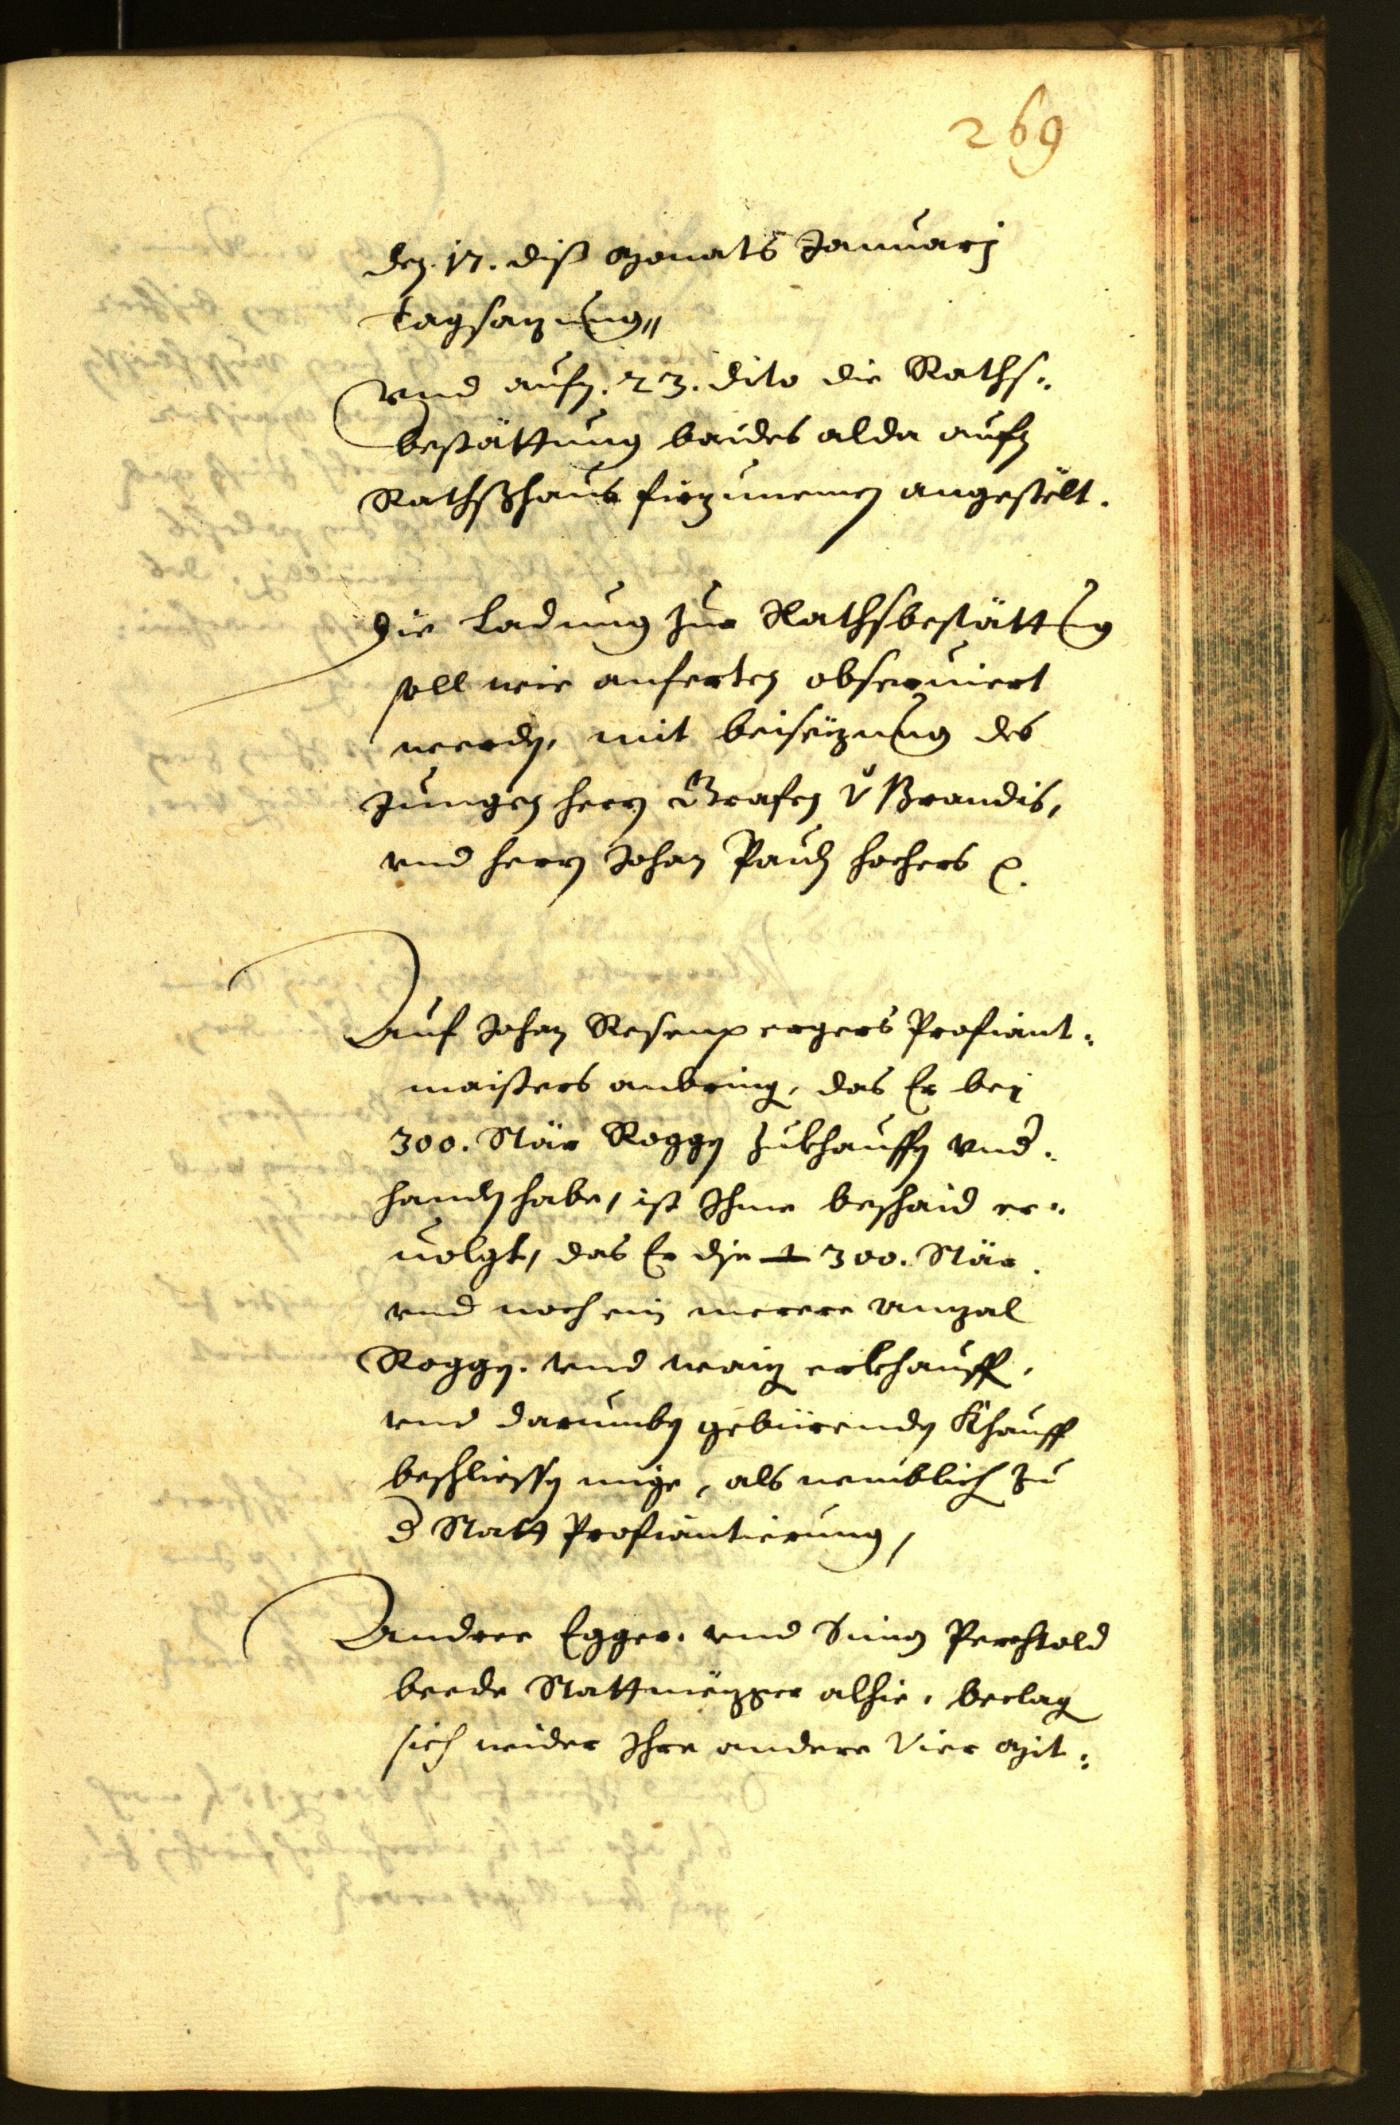 269
den. 17. diß Monats Januarj
tagsazung,,
vnd aufn. 23. dito die Raths-
bestättung baides alda aufn
Rathßhaus firzunemen angestelt.
Die Ladung zur Rathsbestättung
soll wie anferten obseruiert
werden, mit beisizung des
Jungen herrn Grafen v Brandis,
vnd herrn Johan Pauln hochers
Auf Johan Resenpergers Profiant-
maisters anbring, das Er bei
300. Stär Roggen zukhauffen vnd.
handen habe, ist Ihme beschaid er-
uolgt, das Er die 300. Stär.
vnd noch ein merere Anzal
Roggen. vnd waiz erkhauffen,
vnd darumben gebürenden Khauff
beschliessen mige, als nemblich zu
d Statt Profiantierung,
Andree Egger. vnd Simon Perchtold
beede Stattmezger alhie, beclag
sich wider Ihre andere Vier Mit-